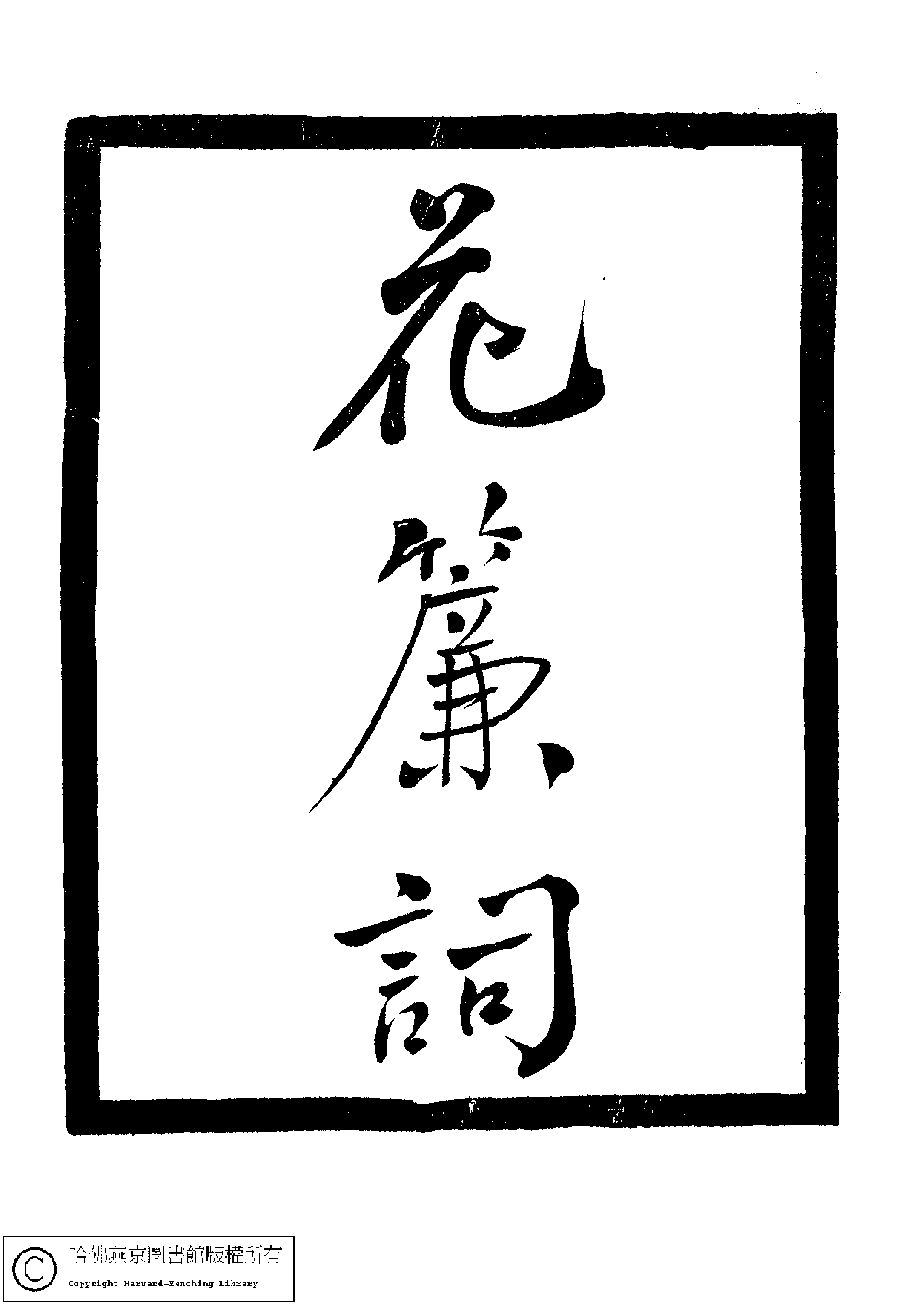 花簾詞
哈佛燕京圖書館版權所有
Copyright Harvard-Yenching Library